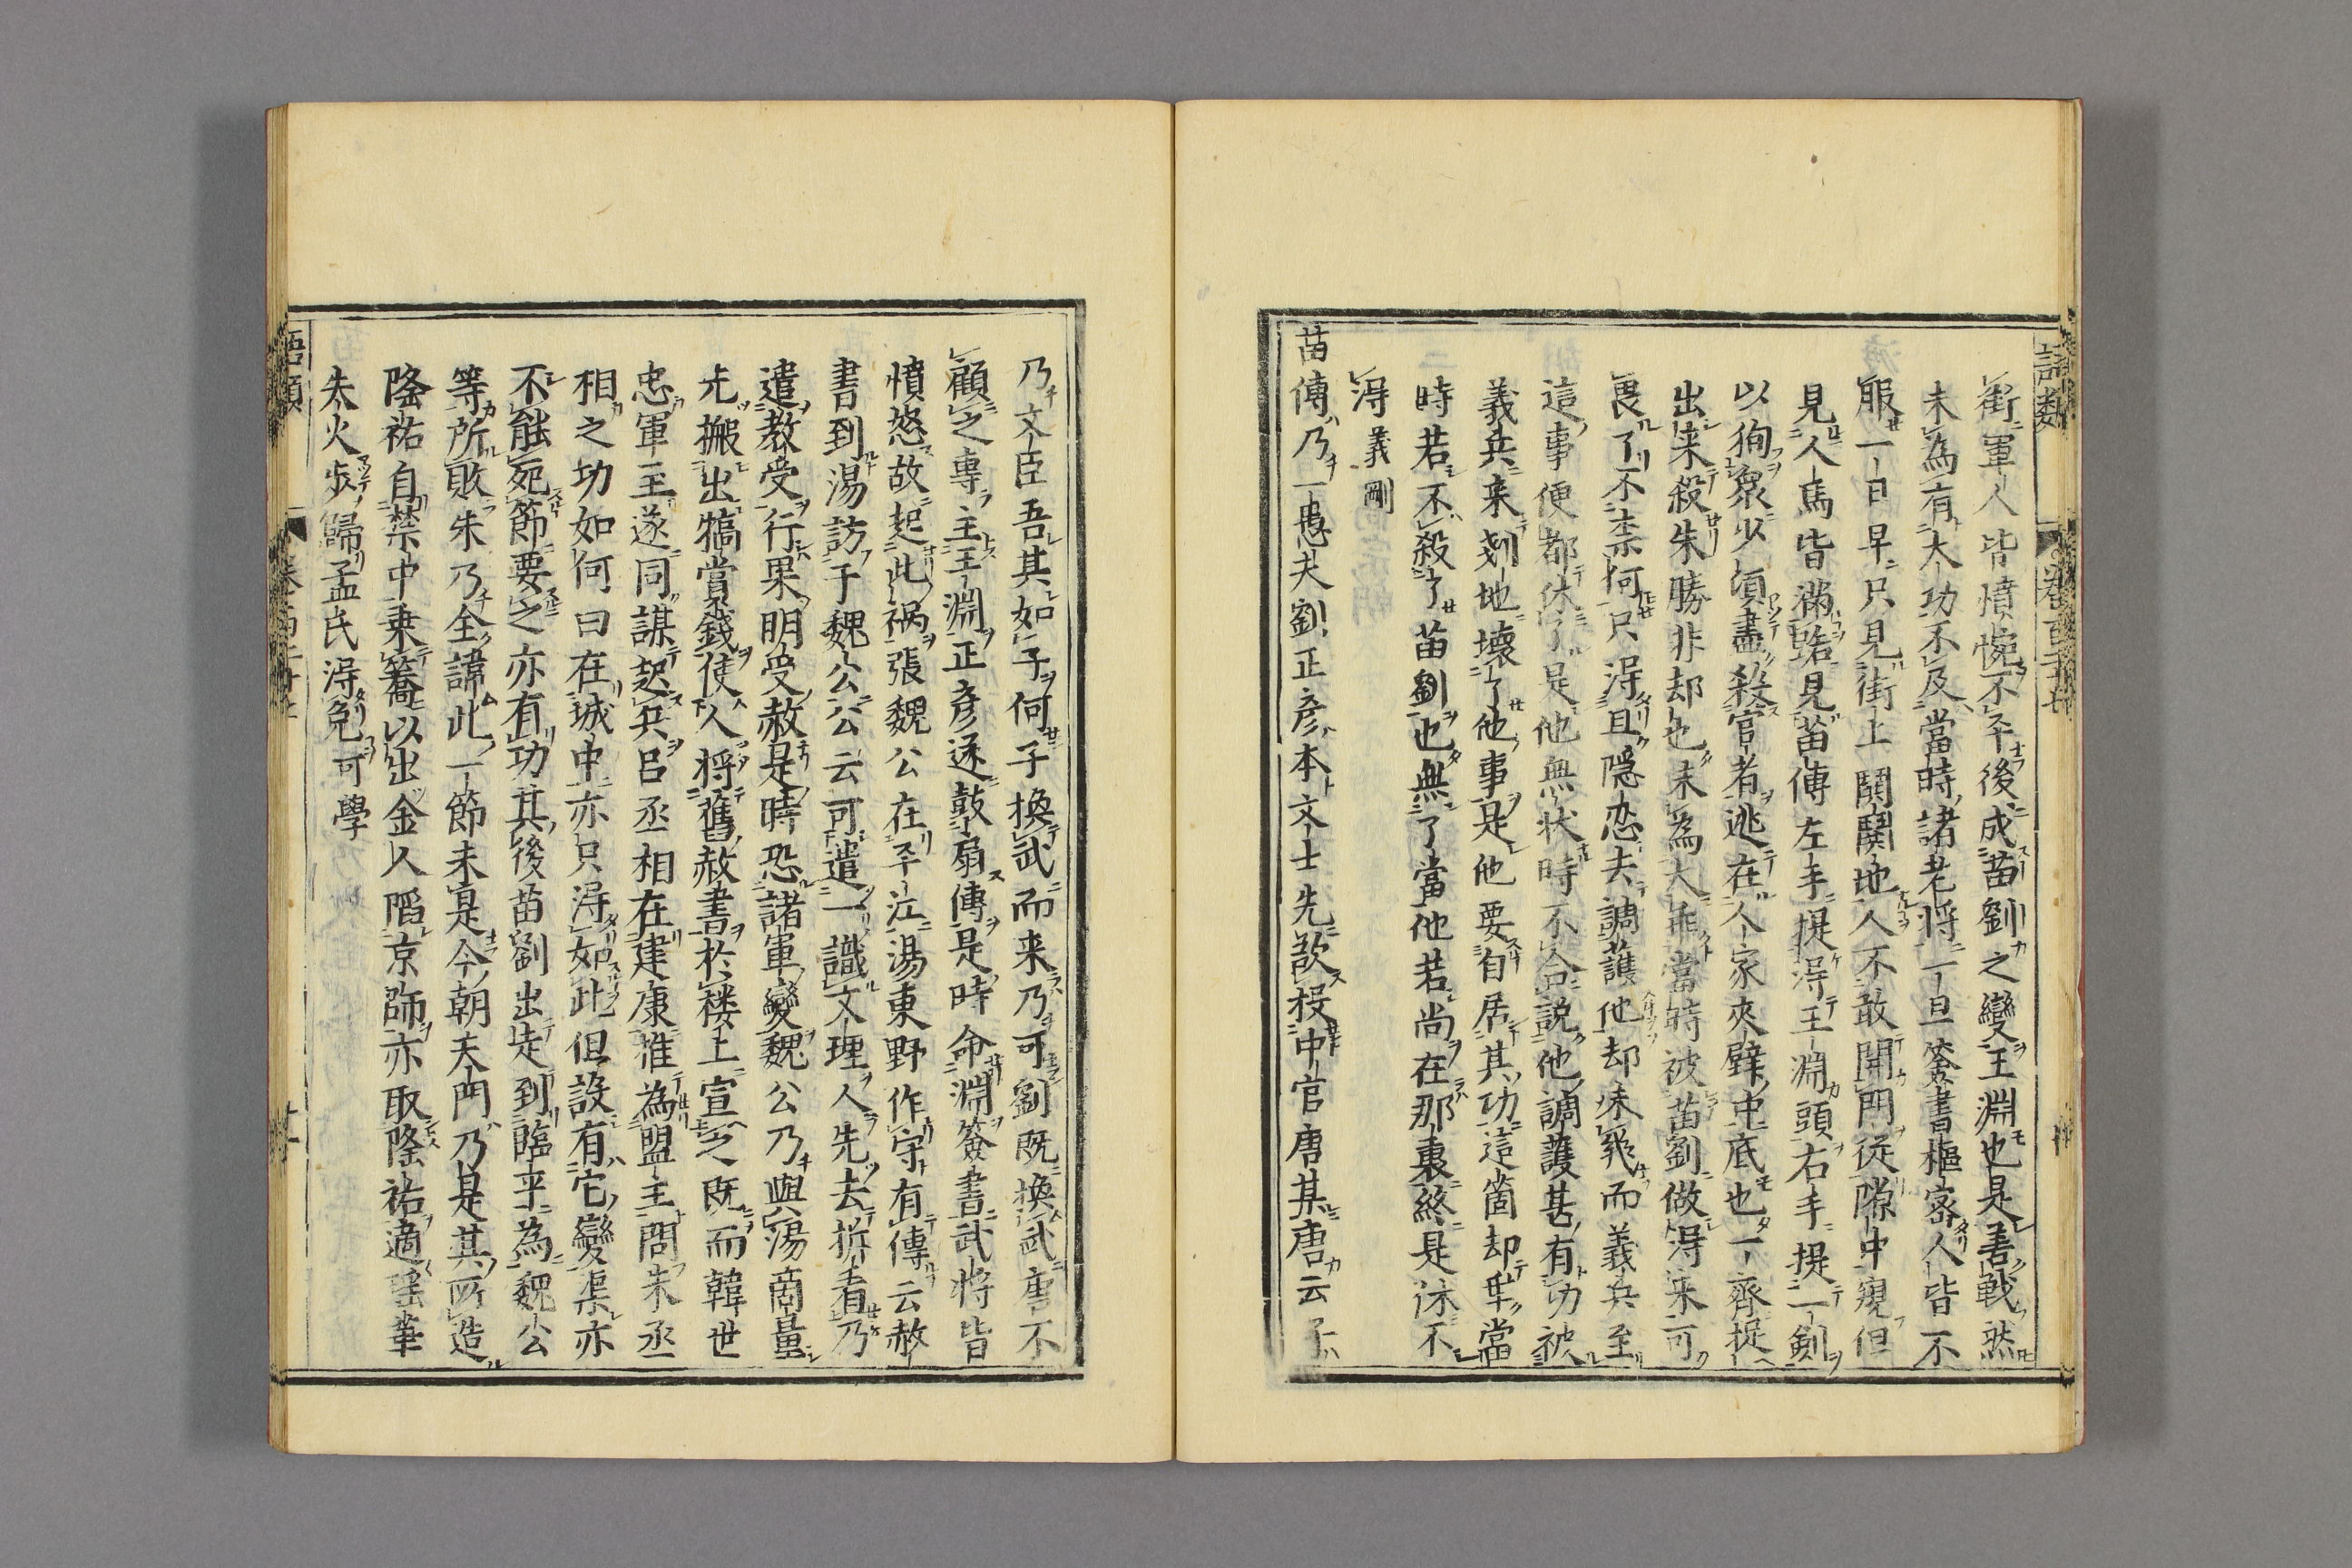 衛軍人皆憤惋不平後成苗劉之變王淵也是善戰然
未為有大功不及當時諸老将一旦簽書樞密人皆不
服一日早只見街上鬨鬨地人不敢開門従隙中窺但
見人馬皆滿路見苗傅左手提淂王淵頭右手提一劍
以徇衆少頃盡殺官者逃在人家夾壁中底也一齊捉
出来殺朱勝非却也未為大乖當時被苗劉做淂来可
畏了不柰何只淂且隠忍去調護他却未幾而義兵至
這事便都休了是他無状時不合説他調護甚有功被
義兵来剗地壊了他事是他要自居其功這箇却乖當
時若不殺了苗劉也無了當他若尚在那裏終是休不
淂 義剛
苗傅乃一愚夫劉正彦本文士先欲投中官唐某唐云子
乃文臣吾其如子何子換武而来乃可劉既換武唐不
顧之専主王淵正彦遂鼓扇傅是時命淵簽書武将皆
憤怒故起此禍張魏公在平江湯東野作守有傳云赦
書到湯訪于魏公公云可遣一識文理人先去拆看乃
遣教受行果明受赦是時恐諸軍變魏公乃與湯商量
尤搬出犒賞錢使人将舊赦書於楼上宣之既而韓世
忠軍至遂同謀起兵吕丞相在建康推為盟主問朱丞
相之功如何曰在城中亦只淂如此但設有它變渠亦
不能死節要之亦有功其後苗劉出走到臨平為魏公
等所敗朱乃全諱此一節未是今朝天門乃是其所造
隆祐自禁中乗轎以出金人䧟京師亦取隆祐適瑶華
失火歩歸孟氏淂免 可學
語類 卷百二十七